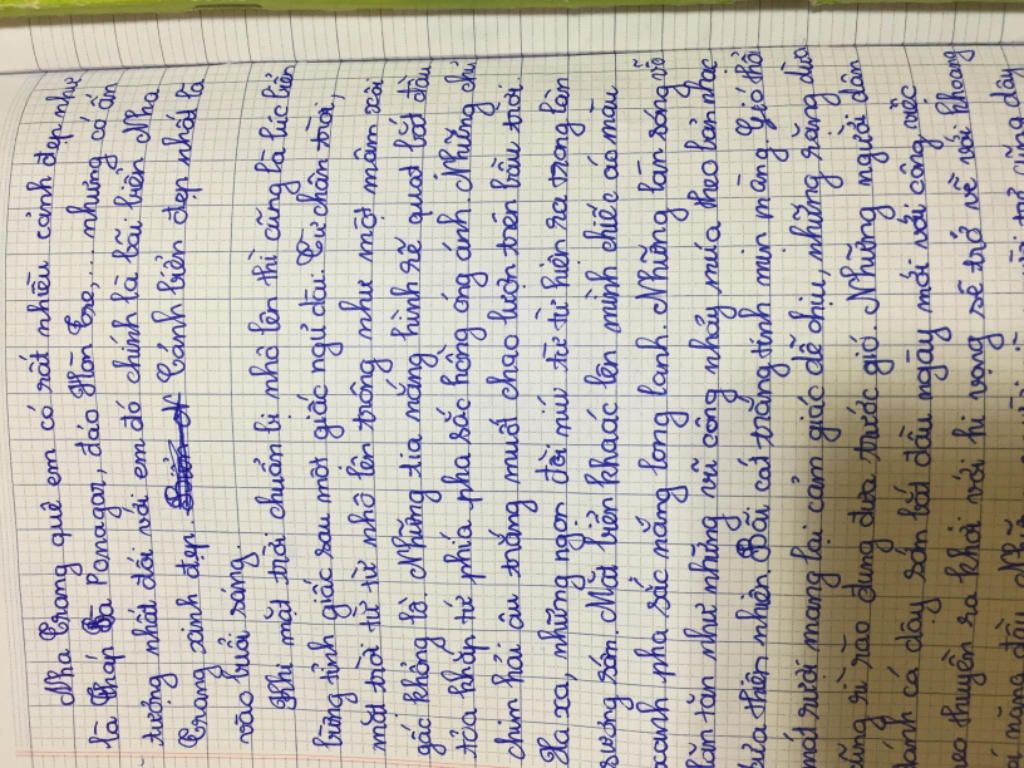 Nha Trang quê em có rất nhiều cảnh đẹp như
là Tháp Bà Ponagar, đảo Hòn Tre,... nhưng có ấn
tượng nhất đối với em đó chính là bãi biển Nha
Trang xinh đẹp. Cảnh biển đẹp nhất là
vào buổi sáng.
Khi mặt trời chuẩn bị nhô lên thì cũng là lúc biển
bừng tỉnh giấc sau một giấc ngủ dài. Từ chân trời,
mặt trời từ từ nhô lên trông như một mâm xôi
gấc khổng lồ. Những tia nắng hình rẽ quạt bắt đầu
tỏa khắp tứ phía pha sắc hồng óng ánh. Những chú
chim hải âu trắng muốt chao lượn trên bầu trời.
Xa xa, những ngọn đồi núi từ từ hiện ra trong làn
sương sớm. Mặt biển khoác lên mình chiếc áo màu
xanh pha sắc nắng long lanh. Những làn sóng vỗ
lăn tăn như những vũ công nhảy múa theo bản nhạc
của thiên nhiên. Bãi cát trắng tinh mịn màng. Gió thổi
mát rượi mang lại cảm giác dễ chịu, những rặng dừa
cũng rì rào đung đưa trước gió. Những người dân
đánh cá dậy sớm bắt đầu ngày mới với công việc
chèo thuyền ra khơi với hi vọng sẽ trở về với khoang
cá nặng đầy. cũng dậy